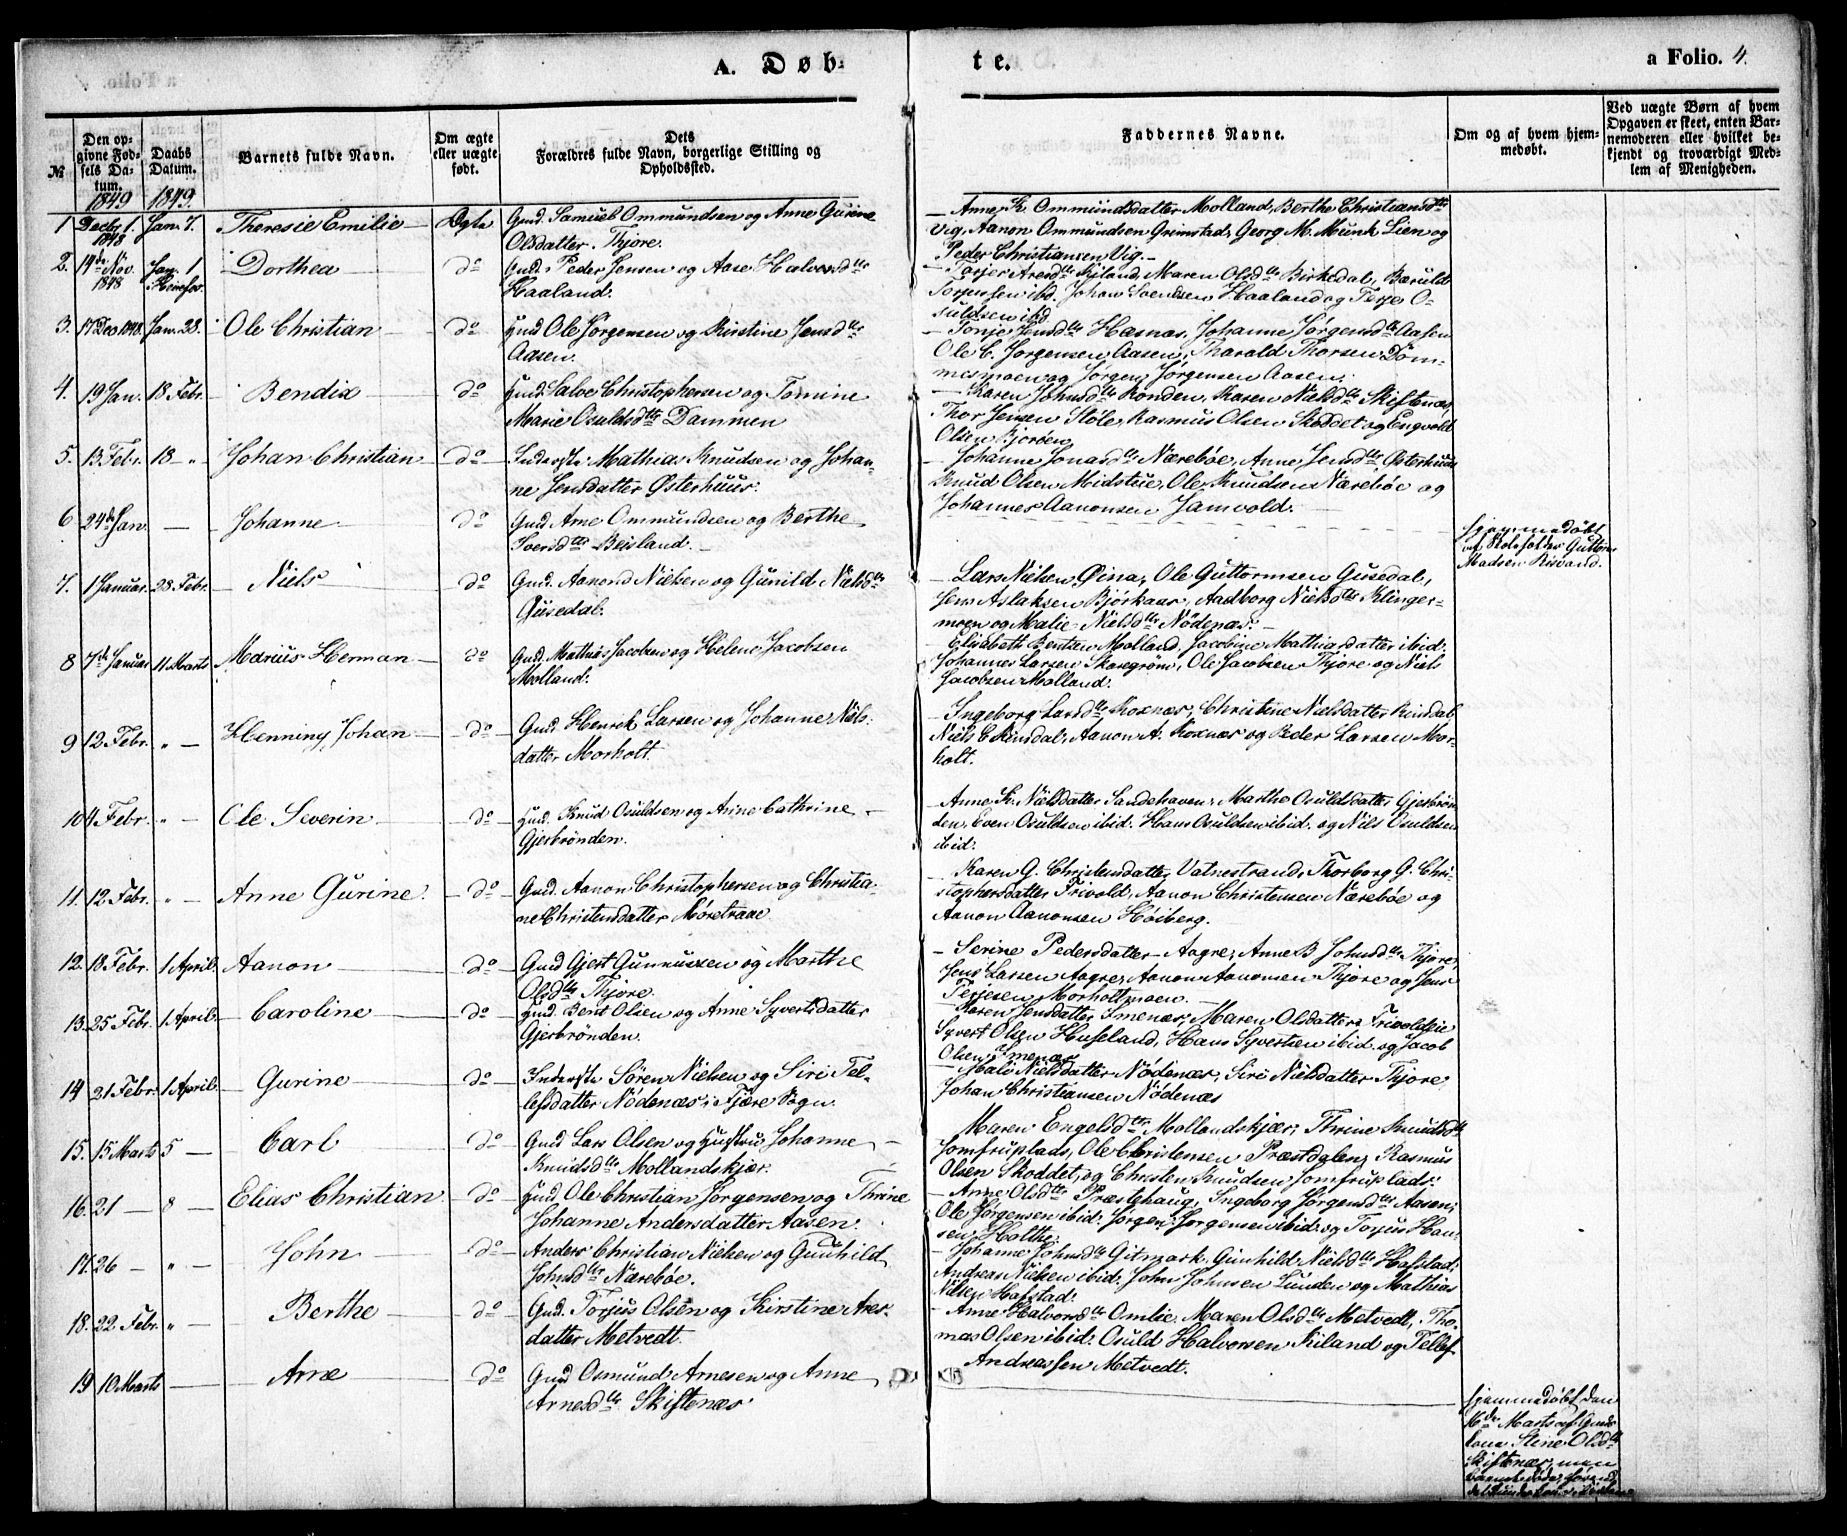 A. Døb-
te.
a Folio. 4.
№
Den op-
givne Fød-
sels Da-
tum.
1849
Daabs
Datum.
1849.
Barnets fulde Navn.
Om ægte
eller uægte
født.
Dets
Forældres fulde Navn, borgerlige Stilling og
Opholdssted.
Faddernes Navne.
Om og af hvem hjem-
medøbt.
Ved uægte Børn af hvem
Opgaven er skeet, enten Bar-
nemoderen eller hvilket be-
kjendt og troværdigt Med-
lem af Menigheden.
1 Decbr 1. 1848 Jan. 7. Theresie Emilie Ægte
Gmd. Samuel Ommundsen og Anne Gurine
Olsdatter Thjore.
Anne K. Ommundsdatter Molland, Berthe Christiansdtr
Vig, Aanon Ommundsen Grimstad, Georg M. Munk Lien og
Peder Christiansen Vig.
2. 14de Nov. 1848 Jan. 1 Dorthea do
Gmd. Peder Jensen og Aase Halvorsdtr
Haaland.
Torjer Aresdtr Kiland, Maren Olsdtr Birkedal,
ibd. Johan Svendsen Haaland og Terje O-
suldsen ibd.
3. 17 Dec. 1848. Jan. 28. Ole Christian do
Gmd Ole Jørgensen og Kirstine Jensdtr
Aasen.
Tonje Jensdtr Hæsnæs, Johanne Jørgensdtr Aasen
Ole C. Jørgensen Aasen, Tharald Thorsen Dom-
mesmoen og Jørgen Jørgensen Aasen.
4. 19 Jan. 18 Febr. Bendix do
Gmd Salve Christophersen og Tomine
Marie Osuldsdtr Dammen
Karen Johnsdtr Ronden, Karen Nielsdtr Skiftenæs,
Thor Jensen Støle, Rasmus Olsen Skoddet og Engvold
Olsen Bjorøen
5. 13 Febr. 18 " Johan Christian do
Inderste Mathias Knudsen og Johan-
ne Jensdatter Østerhuus.
Johanne Jonasdtr Nærebøe, Anne Jensdtr Østerhuus
Knud Olsen Midstue, Ole Knudsen Nærebøe og
Johannes Aanonsen Jamvold.
6 24de Jan. — Johanne do
Gmd Arne Ommundsen og Berthe
Beisland.
hjemmedøbt
af Skoleholder Guttorm
Madsen Risvand.
7. 1 Januar. 28 Febr. Niels do
Gmd. Aanond Nielsen og Gunild Nielsdtr
Gusedal.
Lars Nielsen Øina, Ole Guttormsen Gusedal,
Jens Aslaksen Bjørkaas, Aadborg Nielsdtr Klinger-
moen og Malie Nielsdtr Nødenæs.
8 7de Januar 11 Marts Marius Herman do
Gmd. Mathias Jacobsen og Helene Jacobsen
Molland.
Elisabeth Bentsen Molland, Jacobine Mathiasdatter ibid.
Johannes Larsen Skaregrøm, Ole Jacobsen Thjore og Niels
Jacobsen Molland.
9 12 Febr. " — Henning Johan do
Gmd Henrik Larsen og Johanne Niels-
datter Morholt.
Ingeborg Larsdtr Roxnæs, Christine Nielsdatter Rinsdal
Niels C. Rinsdal, Aanon A. Roxnæs og Peder Larsen Mor-
holt.
10 4 Febr. " — Ole Severin do
Gmd. Knud Osuldsen og Anne Cathrine
Gjerbrønden.
Anne K. Nielsdatter Sandehaven, Marthe Osuldsdatter Gjerbrøn-
den, Even Osuldsen ibid. Hans Osuldsen ibid. og Niels Osuldsen
ibid.
11. 12 Febr. " — Anne Gurine do
Gmd. Aanon Christophersen og Christia-
ne Christensdatter
Karen G. Christensdatter Vatnestrand, Thorborg G. Chri-
stophersdatter Frivold, Aanon Christensen Nærebøe og
Aanon Aanonsen Høiberg.
12. 18 Febr. 1 April. Aanon do
Gmd Gjert Gunnussen og Marthe
Olsdtr Thjore.
Serine Pedersdatter Aagre, Anne B Johnsdtr Thjore,
Jens Larsen Aagre, Aanon Aanonsen Thjore og Jens
Terjesen Morholtmoen.
13. 25 Febr. 1 April. Caroline do
Gmd. Bent Olsen og Anne Syvertsdatter
Gjerbrønden.
Karen Jensdatter Imenæs, Maren Olsdatter Frivoldeie
Syvert Olsen Huseland, Hans Syvertsen ibid. og Jacob
Olsen Imenæs
14 21 Febr. 1 April. Gurine do
Inderste Søren Nielsen og Siri Tel-
lefsdatter Nødenæs i Fjære Sogn.
Malé Nielsdatter Nødenæs, Siri Nielsdatter Thjore
Johan Christiansen Nødenæs
15. 15 Marts 5 — Carl do
Gmd Lars Olsen og Hustru Johanne
Knudsdtr Mollandskjær.
Maren Engelsdtr Mollandskjær, Thrine Knudsdtr
Jomfruplads, Ole Christensen Præstdalen, Rasmus
Olsen Skoddet, og Christen Knudsen Jomfruplads.
16. 21 — 8 — Elias Christian do
Gmd Ole Christian Jørgensen og Thrine
Johanne Andersdatter Aasen.
Anne Olsdtr Præstehaug, Ingeborg Jørgensdtr Aasen,
Ole Jørgensen ibid. Jørgen Jørgensen ibid. og Torjus Han-
sen Holthe.
17. 26 — " — John do
Anders Christian Nielsen og Gunhild
Johnsdtr Nærebøe.
Johanne Johnsdtr Gitmark, Gunhild Nielsdtr Hafstad,
Andreas Nielsen ibid. John Johnsen Lunden og Mathias
Nielsen Hafstad.
18. 22 Febr. " — Berthe do
Gmd. Torjus Olsen og Kirstine Ares-
datter Metvedt.
Anne Halvorsdtr Omlie, Maren Olsdtr Metvedt, Tho-
mas Olsen ibid. Osuld Halvorsen Kiland og Tellef
Andreassen Metvedt.
19 10 Marts — Arne do
Gmd Osmund Arnesen og Anne
Arnesdtr Skiftenæs
hjemmedøbt den
Marts af Gmds
kone Stine Olsdtr
Skiftenæs, men